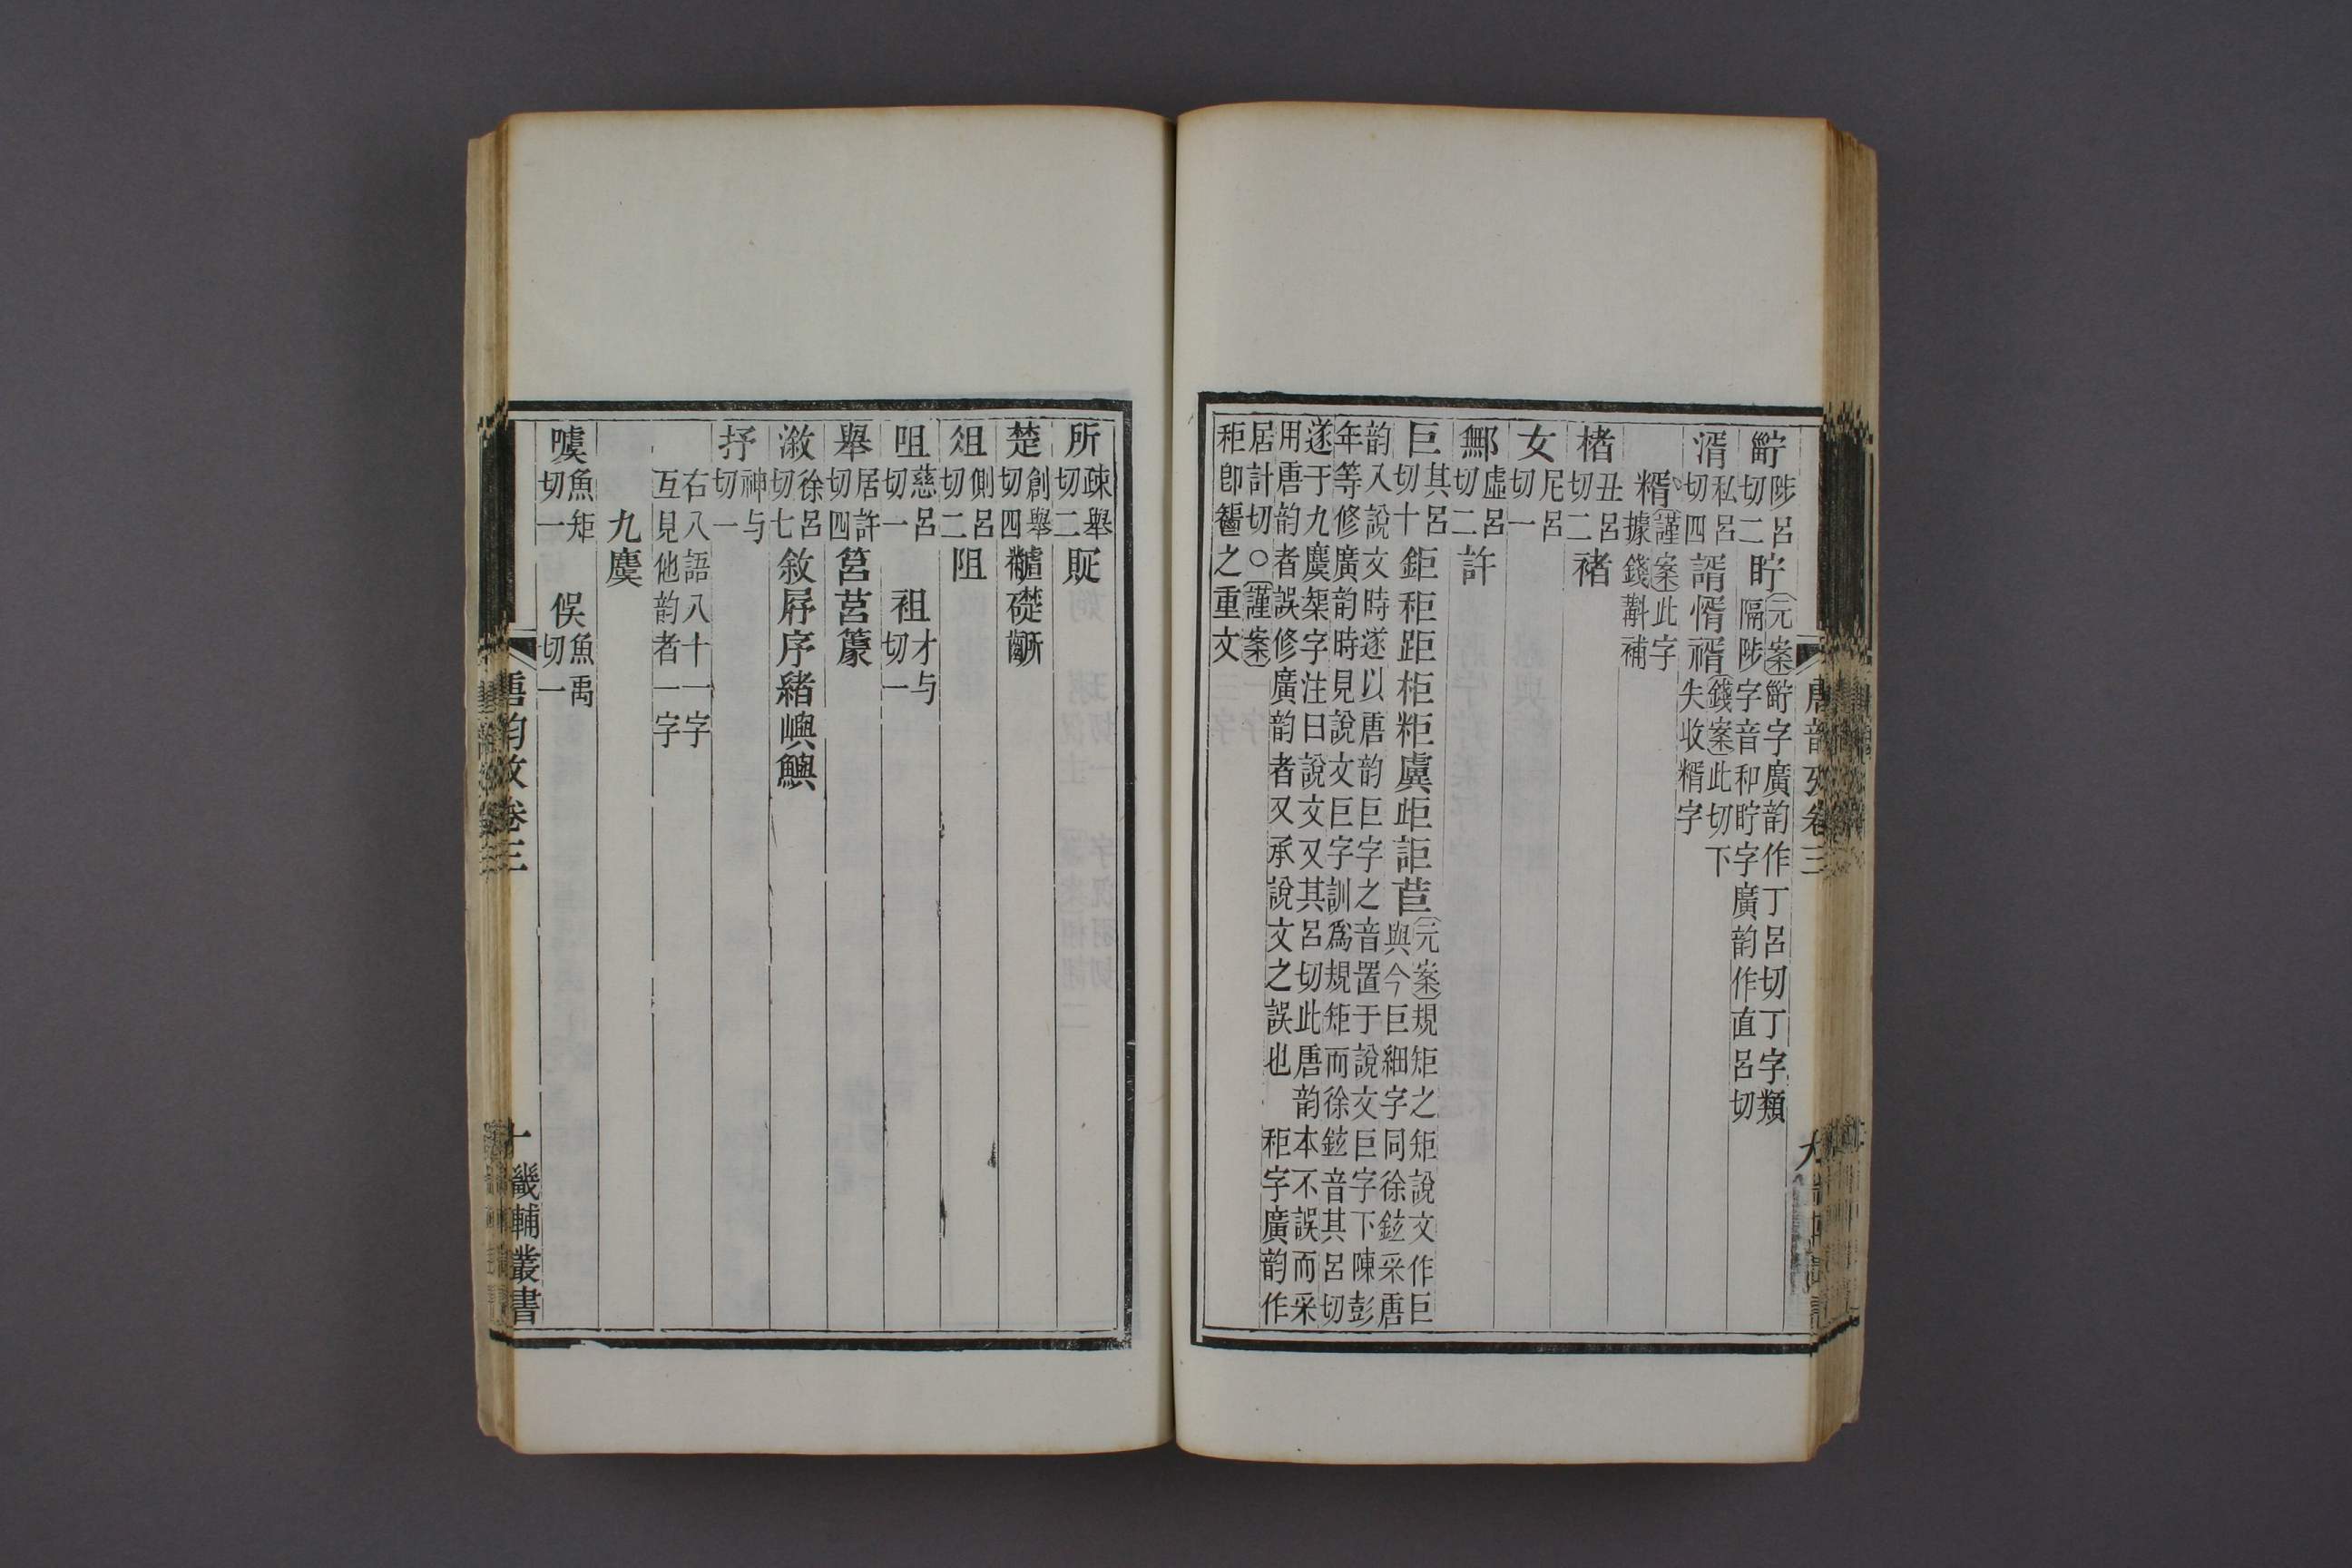 䍆陟呂切二貯元案䍆字廣韵作丁呂切丁字類隔陟字音和貯字廣韵作直呂切
湑私呂切四諝㥠稰錢案此切下失收糈字
糈謹案此字據錢斠補
楮丑呂切二褚
女尼呂切一
鄦虛呂切二許
巨其呂切十鉅秬距柜粔虡歫詎苣元案規矩之矩說文作巨與今巨細字同徐鉉采唐
韵入說文時遂以唐韵巨字之音置于說文巨字下陳彭年等修廣韵時見說文巨字訓爲規矩而徐鉉音其呂切
遂于九麌榘字注曰說文又其呂切此唐韵本不誤而采用唐韵者誤修廣韵者又承說文之誤也　秬字廣韵作
居計切○謹案秬卽䰞之重文
唐韵攷卷三
九
所疎舉切二䝪
楚創舉切四䊝礎齭
俎側呂切二阻
咀慈呂切一　袓才与切一
舉居許切四筥莒簴
漵徐呂切七敘屛序緒嶼鱮
抒神与切一
右八語八十一字互見他韵者一字
九麌
噳魚矩切一　俁魚禹切一
唐韵攷卷三
十
畿輔叢書